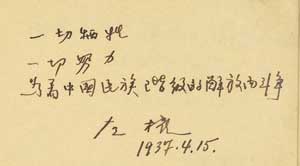 一切牺牲
一切努力
为着中国民族階级的解放而斗争
左權
1937.4.15.